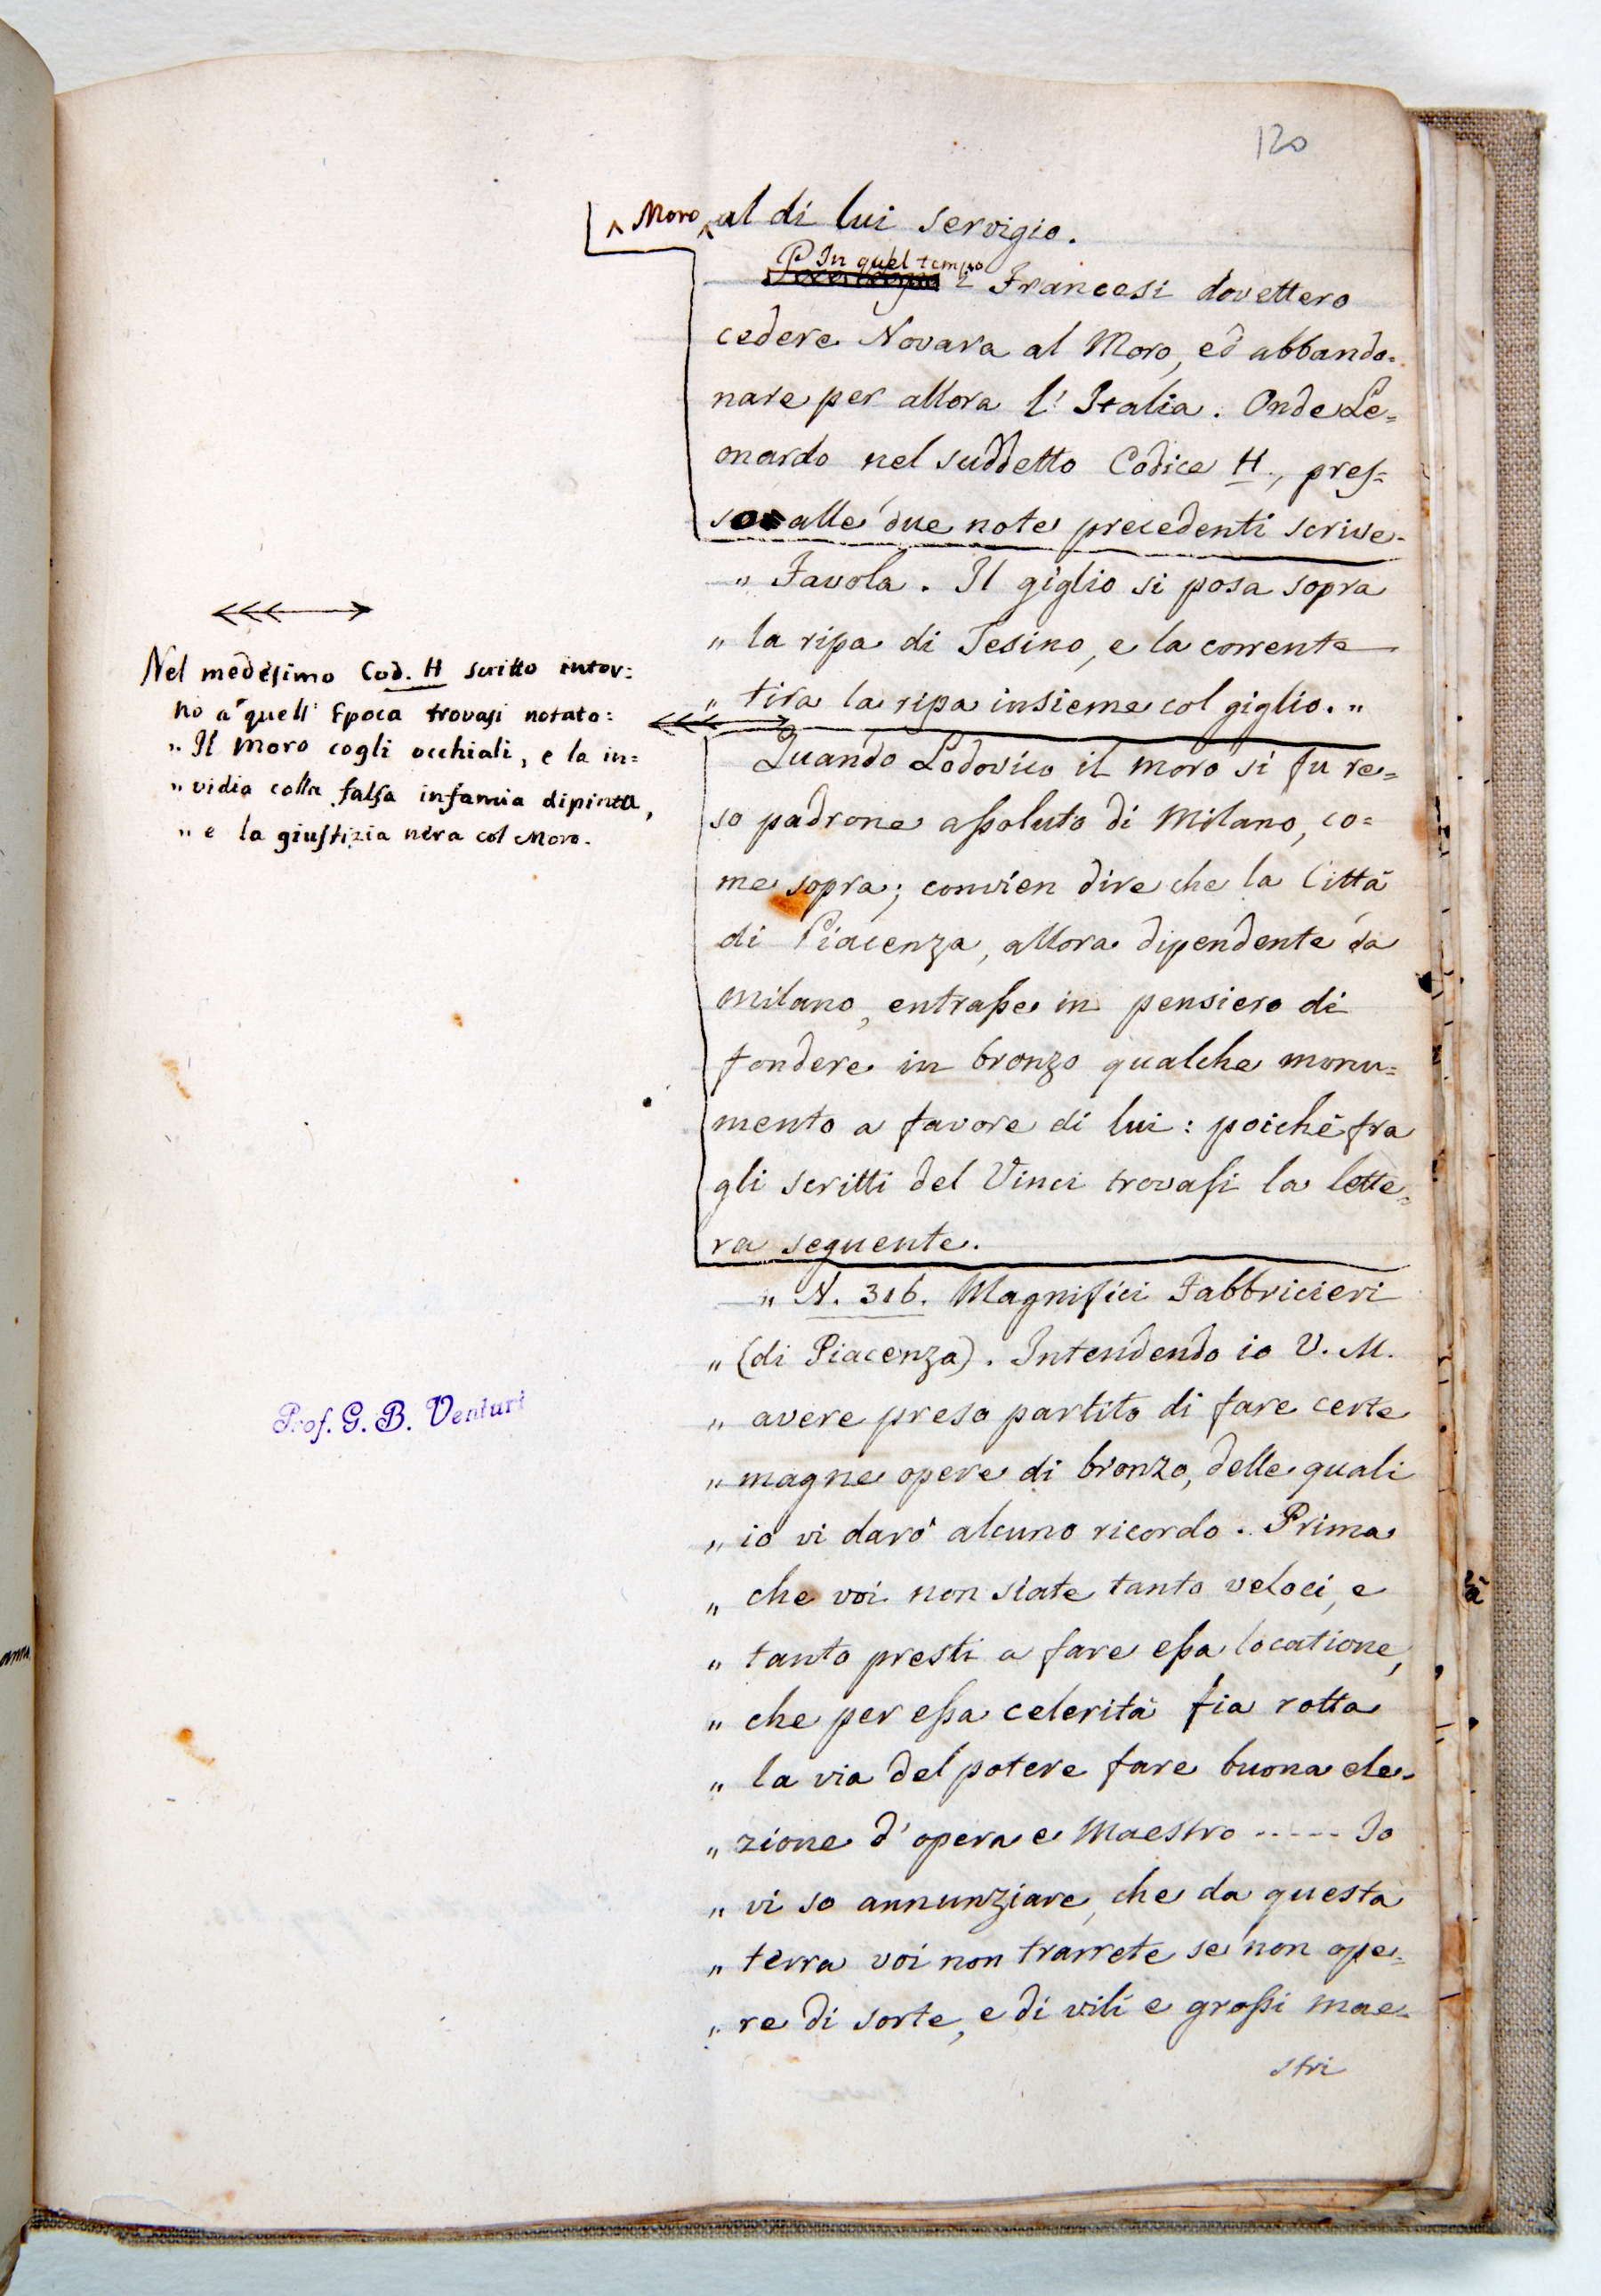 120
Moro al di lui servigio.
In quel tempo
i Francesi dovettero
cedere Novara al Moro, ed abbando=
nare per allora l'Italia. Onde Le=
onardo nel suddetto Codice H., pres=
so alle due note precedenti scrive.
„ Favola. Il giglio si posa sopra
„ la ripa di Tesino, e la corrente
„ tira la ripa insieme col giglio. „
Quando Lodovico il moro si fu re=
so padrone assoluto di Milano, co=
me sopra; convien dire che la Città
di Piacenza, allora dipendente da
Milano, entrasse in pensiero di
fondere in bronzo qualche monu=
mento a favore di lui: poichè fra
gli scritti del Vinci trovasi la lette=
ra seguente.
„ N. 316. Magnifici Fabbricieri
„ (di Piacenza). Intendendo io V. M.
„ avere preso partito di fare certe
„ magne opere di bronzo, delle quali
„ io vi darò alcuno ricordo. Prima
„ che voi non siate tanto veloci, e
„ tanto presti a fare essa locatione,
„ che per essa celerità fia rotta
„ la via del potere fare buona ele=
„ zione d'opera e Maestro ----- Io
„ vi so annunziare, che da questa
„ terra voi non trarrete se non ope=
„ re di sorte, e di vili e grossi mae=
stri
Nel medesimo Cod. H scritto intor=
no a quell' Epoca trovasi notato:
„ Il Moro cogli occhiali, e la in=
„ vidia colla falsa infamia dipinta,
„ e la giustizia nera col Moro.
Prof. G. B. Venturi